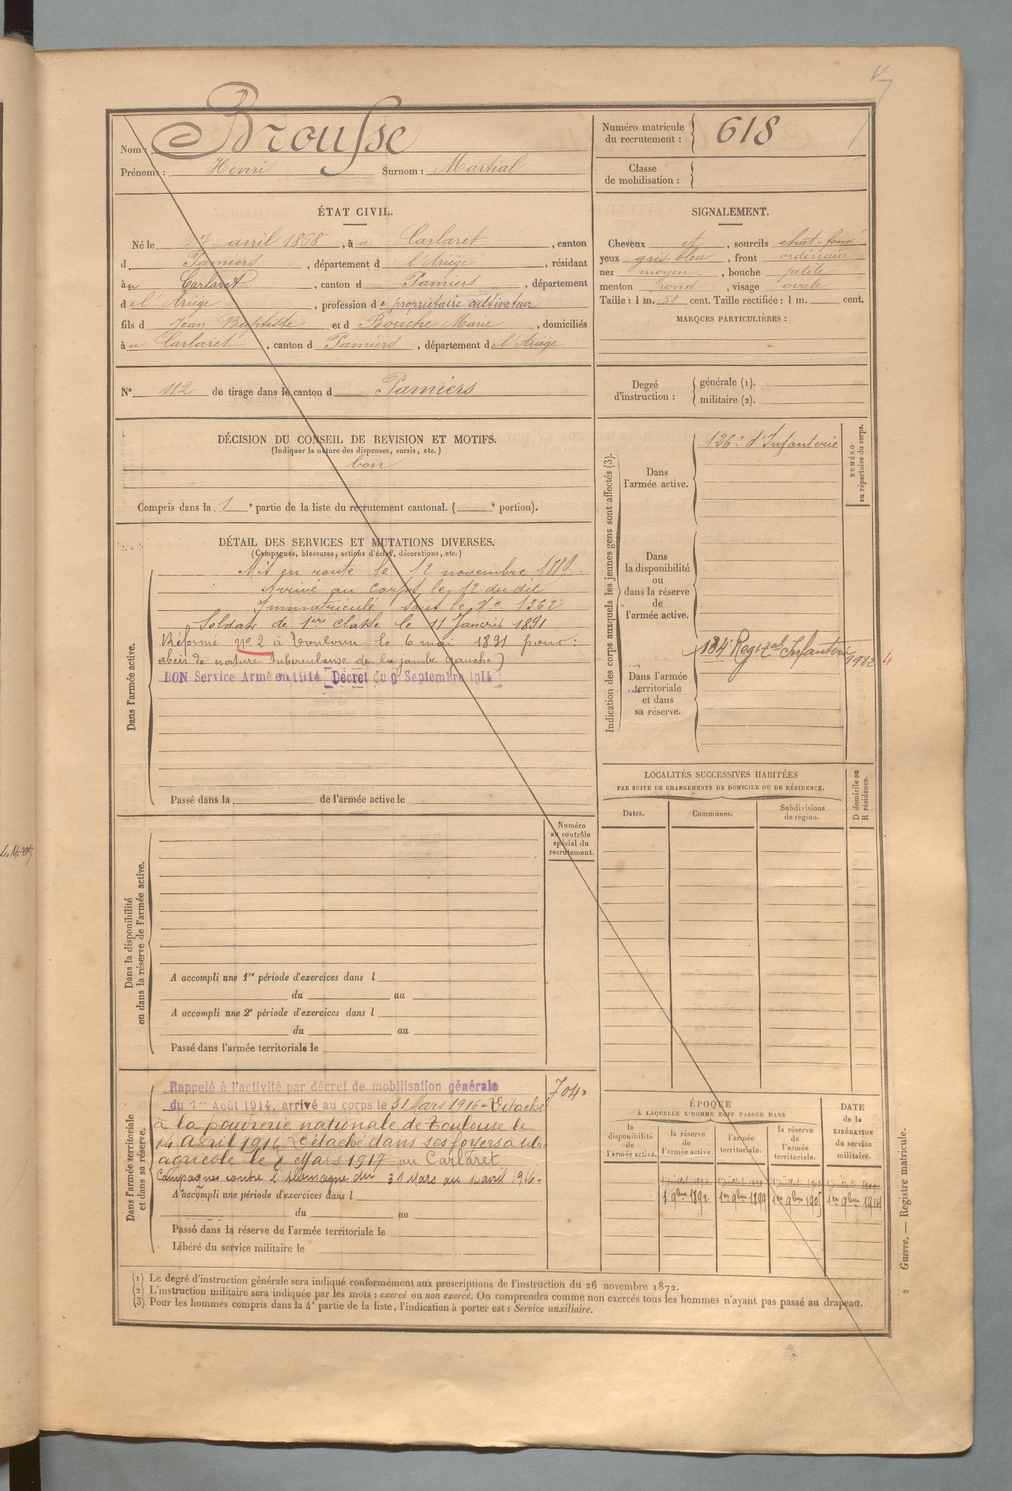 Nom : Brousse
Prénoms : Henri Surnom : Martial
Numéro matricule
du recrutement : 618
Classe
de mobilisation :
ÉTAT CIVIL.
Né le 27 avril 1868, à Carlaret, canton
d Pamiers, département d l'Ariège, résidant
à Carlaret, canton d Pamiers, département
d l'Ariège, profession de propriétaire cultivateur
fils d Jean Baptiste et d Bouche Marie, domiciliés
à Carlaret, canton d Pamiers, département d l'Ariège
SIGNALEMENT.
Cheveux et, sourcils chat-foncé
yeux gris bleu, front ordinaire
nez moyen, bouche petite
menton rond, visage ovale
Taille : 1 m. 58 cent. Taille rectifiée : 1 m. cent.
MARQUES PARTICULIÈRES :
N° 112 de tirage dans le canton d Pamiers
Degré
d'instruction :
générale (1).
militaire (2).
DÉCISION DU CONSEIL DE REVISION ET MOTIFS.
(Indiquer la nature des dispenses, sursis, etc.)
bon
Compris dans la 1e partie de la liste du recrutement cantonal. ( e portion).
DÉTAIL DES SERVICES ET MUTATIONS DIVERSES.
(Campagnes, blessures, actions d'éclat, décorations, etc.)
Dans l'armée active.
Mis en route le 12 novembre
Arrivé au corps le 12 du dit
Immatriculé sous le N° 1362
Soldat de 1re classe le 11 Janvier 1891
Réformé n° 2 à Toulouse le 6 mai 1891 pour :
abcès de nature tuberculeuse de la jambe gauche)
BON Service Armé en 1914 Décret du 9 Septembre 1914
Passé dans la de l'armée active le
Indication des corps auxquels les jeunes gens sont affectés (3).
NUMÉRO
au répertoire du corps.
Dans
l'armée active.
126e d'Infanterie
Dans
la disponibilité
ou
dans la réserve
de
l'armée active.
Dans l'armée
territoriale
et dans
sa réserve.
134e Regt d'Infanterie
LOCALITÉS SUCCESSIVES HABITÉES
PAR SUITE DE CHANGEMENTS DE DOMICILE OU DE RÉSIDENCE.
Dates.
Communes.
Subdivisions
de région.
D domicile ou
R résidence.
Numéro
au contrôle
spécial du
recrutement.
Dans la disponibilité
ou dans la réserve de l'armée active.
A accompli une 1re période d'exercices dans l
du au
A accompli une 2e période d'exercices dans l
du au
Passé dans l'armée territoriale le
Dans l'armée territoriale
et dans sa réserve.
Rappelé à l'activité par décret de mobilisation générale
du 1er Août 1914, arrivé au corps le 31 Mars 1916 - Détaché
à la poudrerie nationale de Toulouse le
14 avril 1916. Détaché dans ses foyers
agricole le 1 Mars 1917 au Carlaret
Campagnes contre l'Allemagne du 31 Mars au avril 1916 -
704
A accompli une période d'exercices dans l
du au
Passé dans la réserve de l'armée territoriale le
Libéré du service militaire le
ÉPOQUE
À LAQUELLE L'HOMME DOIT PASSER DANS
la
disponibilité
de
l'armée active.
la réserve
de
l'armée active.
l'armée
territoriale.
la réserve
de
l'armée
territoriale.
DATE
de la
LIBÉRATION
du service
militaire.
1 9bre 1892
1er 9bre 1899
1er 9bre 1905
1er 9bre 1914
Guerre. — Registre matricule.
2
(1) Le degré d'instruction générale sera indiqué conformément aux prescriptions de l'instruction du 26 novembre 1872.
(2) L'instruction militaire sera indiquée par les mots : exercé ou non exercé. On comprendra comme non exercés tous les hommes n'ayant pas passé au drapeau.
(3) Pour les hommes compris dans la 4e partie de la liste, l'indication à porter est : Service auxiliaire.